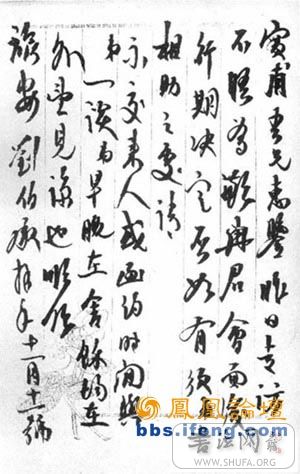 甫吾兄志鑒昨日走訪
不晤為歉與君會面
行期決定否如有須
相助之處請
示交來人或函約時間與
弟一談早晚在舍餘均在
外望見諒也順頌
旅安劉伯承拜手十一月十一號
鳳凰論壇
bbs.ifeng.com
书法网
WWW.SHUFA.ORG